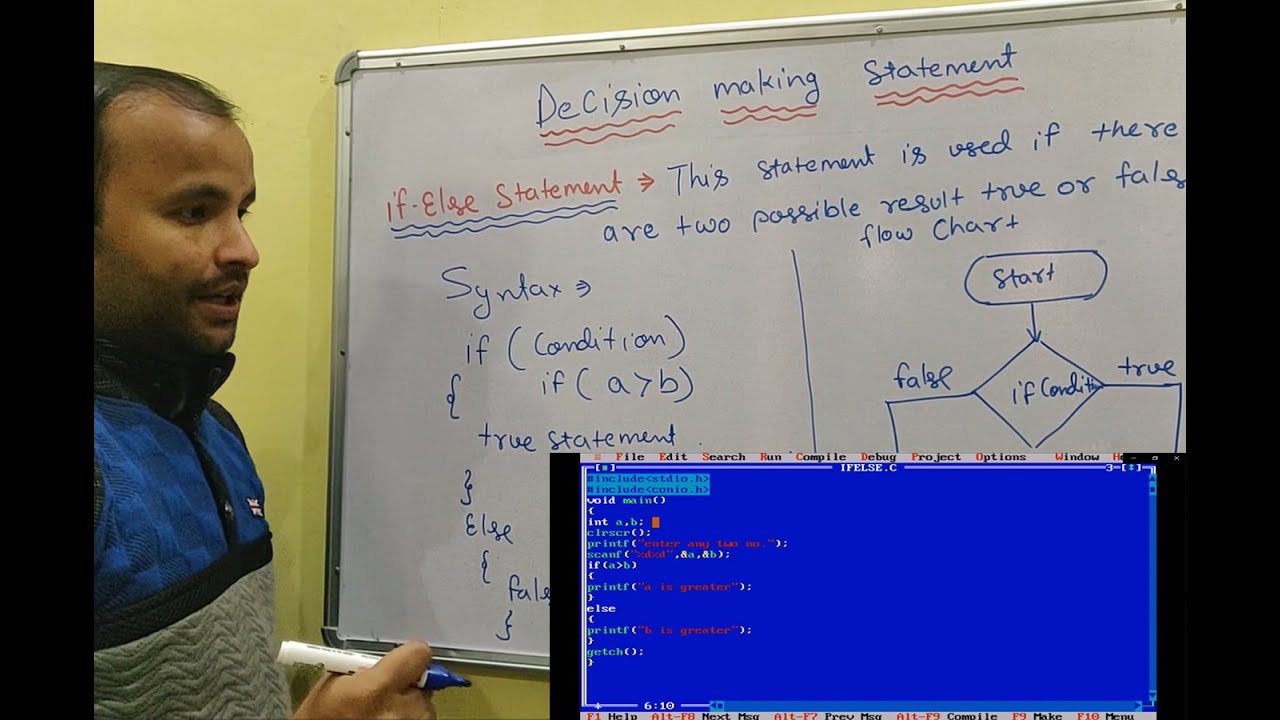 Decision making Statement
if-Else Statement ⇒ This statement is used if there
are two possible result true or fals
flow Chart
Syntax ⇒
if (Condition)
{ if (a>b)
true statement.
}
Else
{
fals
}
Start
false
if Conditi
true
≡ File Edit Search Run Compile Debug Project Options Window H
IFELSE.C 3
#include<stdio.h>
#include<conio.h>
void main()
{
int a,b;
clrscr();
printf("enter any two no.");
scanf("%d%d",&a,&b);
if(a>b)
{
printf("a is greater");
}
else
{
printf("b is greater");
}
getch();
}
* 6:10
F1 Help Alt-F8 Next Msg Alt-F7 Prev Msg Alt-F9 Compile F9 Make F10 Menu